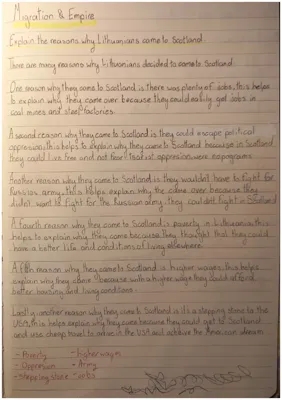 Migration & Empire
Explain the reasons why Lithuanians came to Scotland.
There are many reasons why Lithuanians decided to come to Scotland.
One reason why they came to Scotland is there was plenty of jobs, this helps
to explain why they came over because they could easily get jobs in
coal mines and steel factories.
A second reason why they came to Scotland is they could escape political
oppression, this helps to explain why they came to Scotland because in Scotland
they could live free and not fear Tsarist oppression
Another reason why they came to Scotland is they wouldn't have to fight for
Russian army, this helps explain why the came over because they
didn't want to fight for the Russian army, they could in Scotland
A fourth reason why they came to Scotland is poverty in Lithuania, this
helps to explain why they came because they thought that they could
have a better life and conditions of living elsewhere.
A fifth reason why they came to Scotland is higher wages, this helps
explain why they came because with a higher wage they could afford
better housing and living conditions.
Lastly another reason why they came to Scotland is it's a stepping stone to the
USA, this helps explain why they came because they could get to Scotland
and use cheap travel to arrive in the USA and achieve the American dream.
- Poverty - higher wages
- Oppression - Army
- stepping stone - jobs